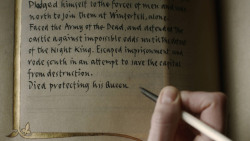 Pledged himself to the forces of men and
north to join them at Winterfell, alone.
Faced the Army of the Dead, and defended the
castle against impossible odds until the defeat
of the Night King. Escaped imprisonment and
rode south in an attempt to save the capital
from destruction.
Died protecting his Queen